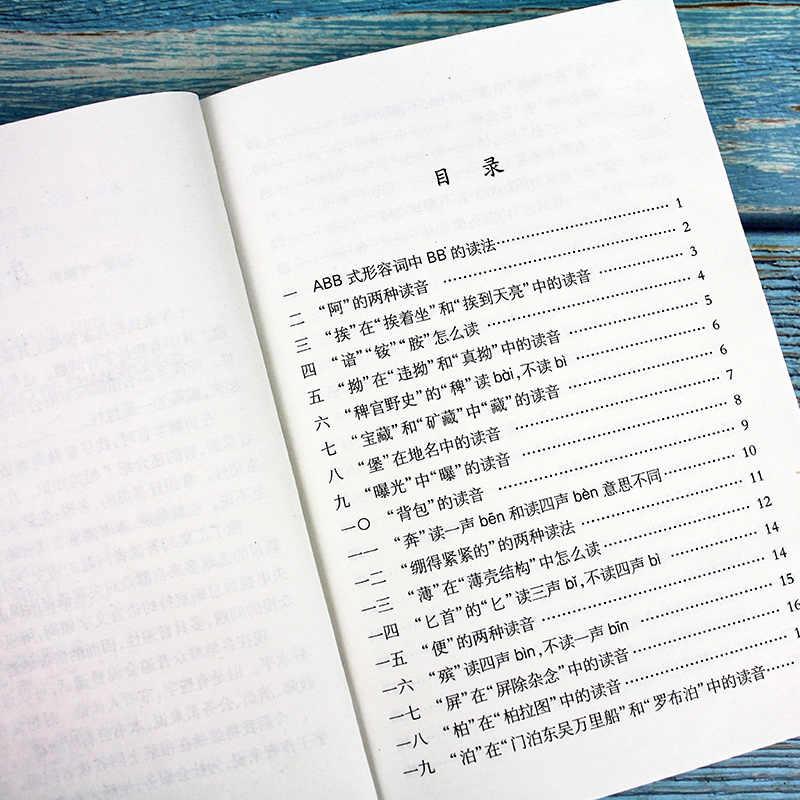 目录
一 ABB 式形容词中 BB 的读法……1
二 “阿”的两种读音……2
三 “挨”在“挨着坐”和“挨到天亮”中的读音……3
四 “谙”“铵”“胺”怎么读……4
五 “拗”在“违拗”和“真拗”中的读音……5
六 “稗官野史”的“稗”读 bài,不读 bì……6
七 “宝藏”和“矿藏”中“藏”的读音……6
八 “堡”在地名中的读音……7
九 “曝光”中“曝”的读音……8
一〇 “背包”的读音……9
一一 “奔”读一声 bēn 和读四声 bèn 意思不同……10
一二 “绷得紧紧的”的两种读法……11
一三 “薄”在“薄壳结构”中怎么读……12
一四 “匕首”的“匕”读三声 bǐ,不读四声 bì……14
一五 “便”的两种读音……14
一六 “殡”读四声 bìn,不读一声 bīn……15
一七 “屏”在“屏除杂念”中的读音……16
一八 “柏”在“柏拉图”中的读音……
一九 “泊”在“门泊东吴万里船”和“罗布泊”中的读音……